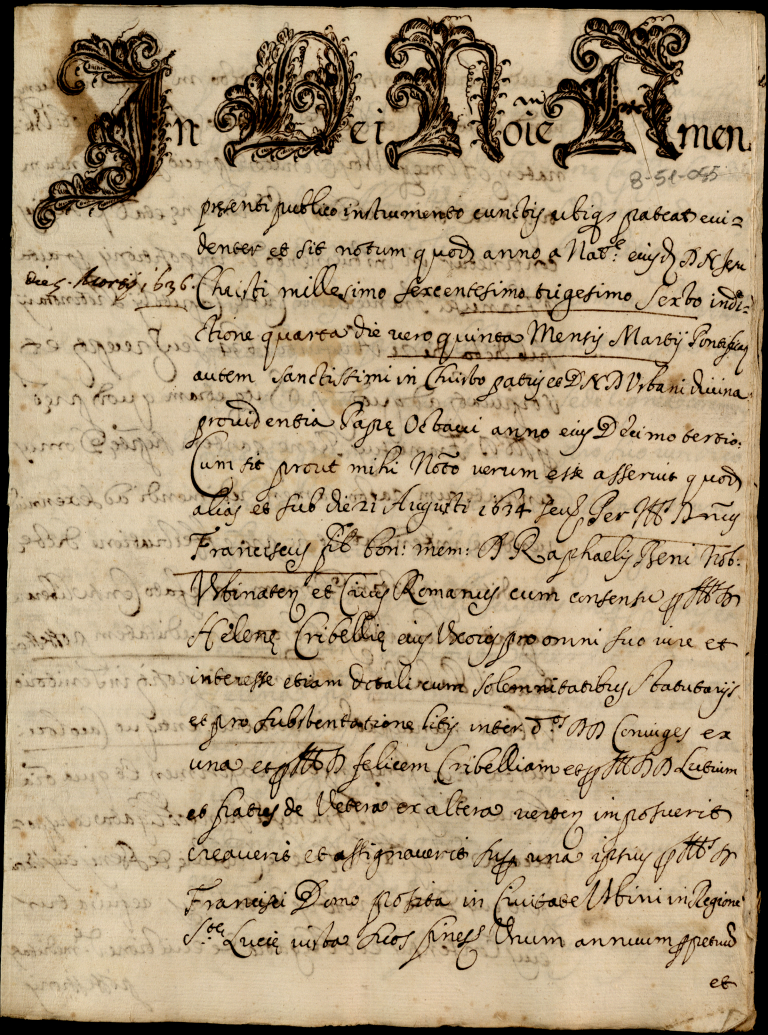 In Dei Noie Amen
8-51-055
presenti publico instrumento cunctis ubiqs pateat evi=
denter et sit notum quod anno a Nate eiusd D N Jesu
dies Martij 1636
Christi millesimo sexcentesimo trigesimo Sexto indi=
ctione quarta die vero quinta Mensis Martij Pontificatus
autem Sanctissimi in Christo patris et D N D Urbani divina
providentia Papę Octavi anno eius Decimo tertio.
Cum sit prout mihi Notо verum esse asseruit quod
alias et sub die 21 Augusti 1634 seu Per Ill D
Franciscus bon: mem: D Raphaelis Beni Nob:
Urbinaten et Civis Romanus cum consensu Ill D
Helenę Cribellię eius Uxoris pro omni suo iure et
interesse etiam dotali cum solemnitatibus statutarijs
et pro substentatione litis inter d.os DD Coniuges ex
una et Ill D felicem Cribelliam et Ill DD
et fratres de Vetera ex altera verten imposuerit
creaverit et assignaverit sup una ipsius Ill D
Francisci Domo posita in Civitate Urbini in Regione
S.tę Lucię iuxta suos fines Unum annuum perpetuu
et